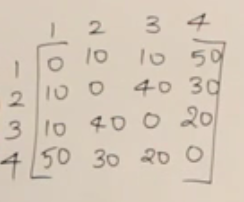 1 2 3 4
1 0 10 10 50
2 10 0 40 30
3 10 40 0 20
4 50 30 20 0